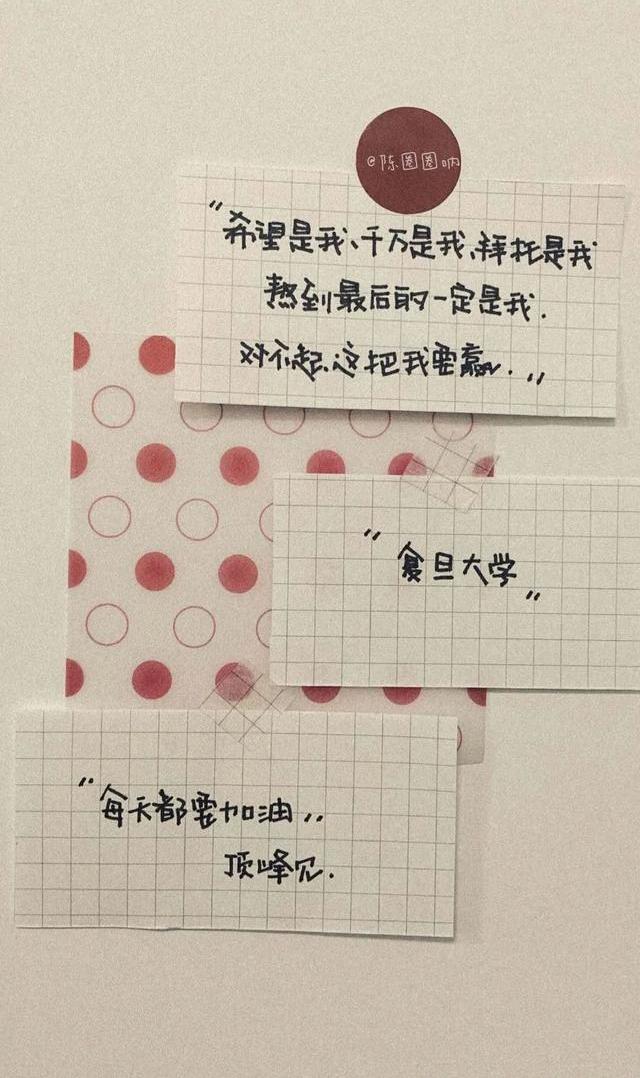 @陈圈圈呐
“希望是我、千万是我、拜托是我
熬到最后的一定是我.
对不起、这把我要赢.”
“复旦大学”
“每天都要加油,,
顶峰见.